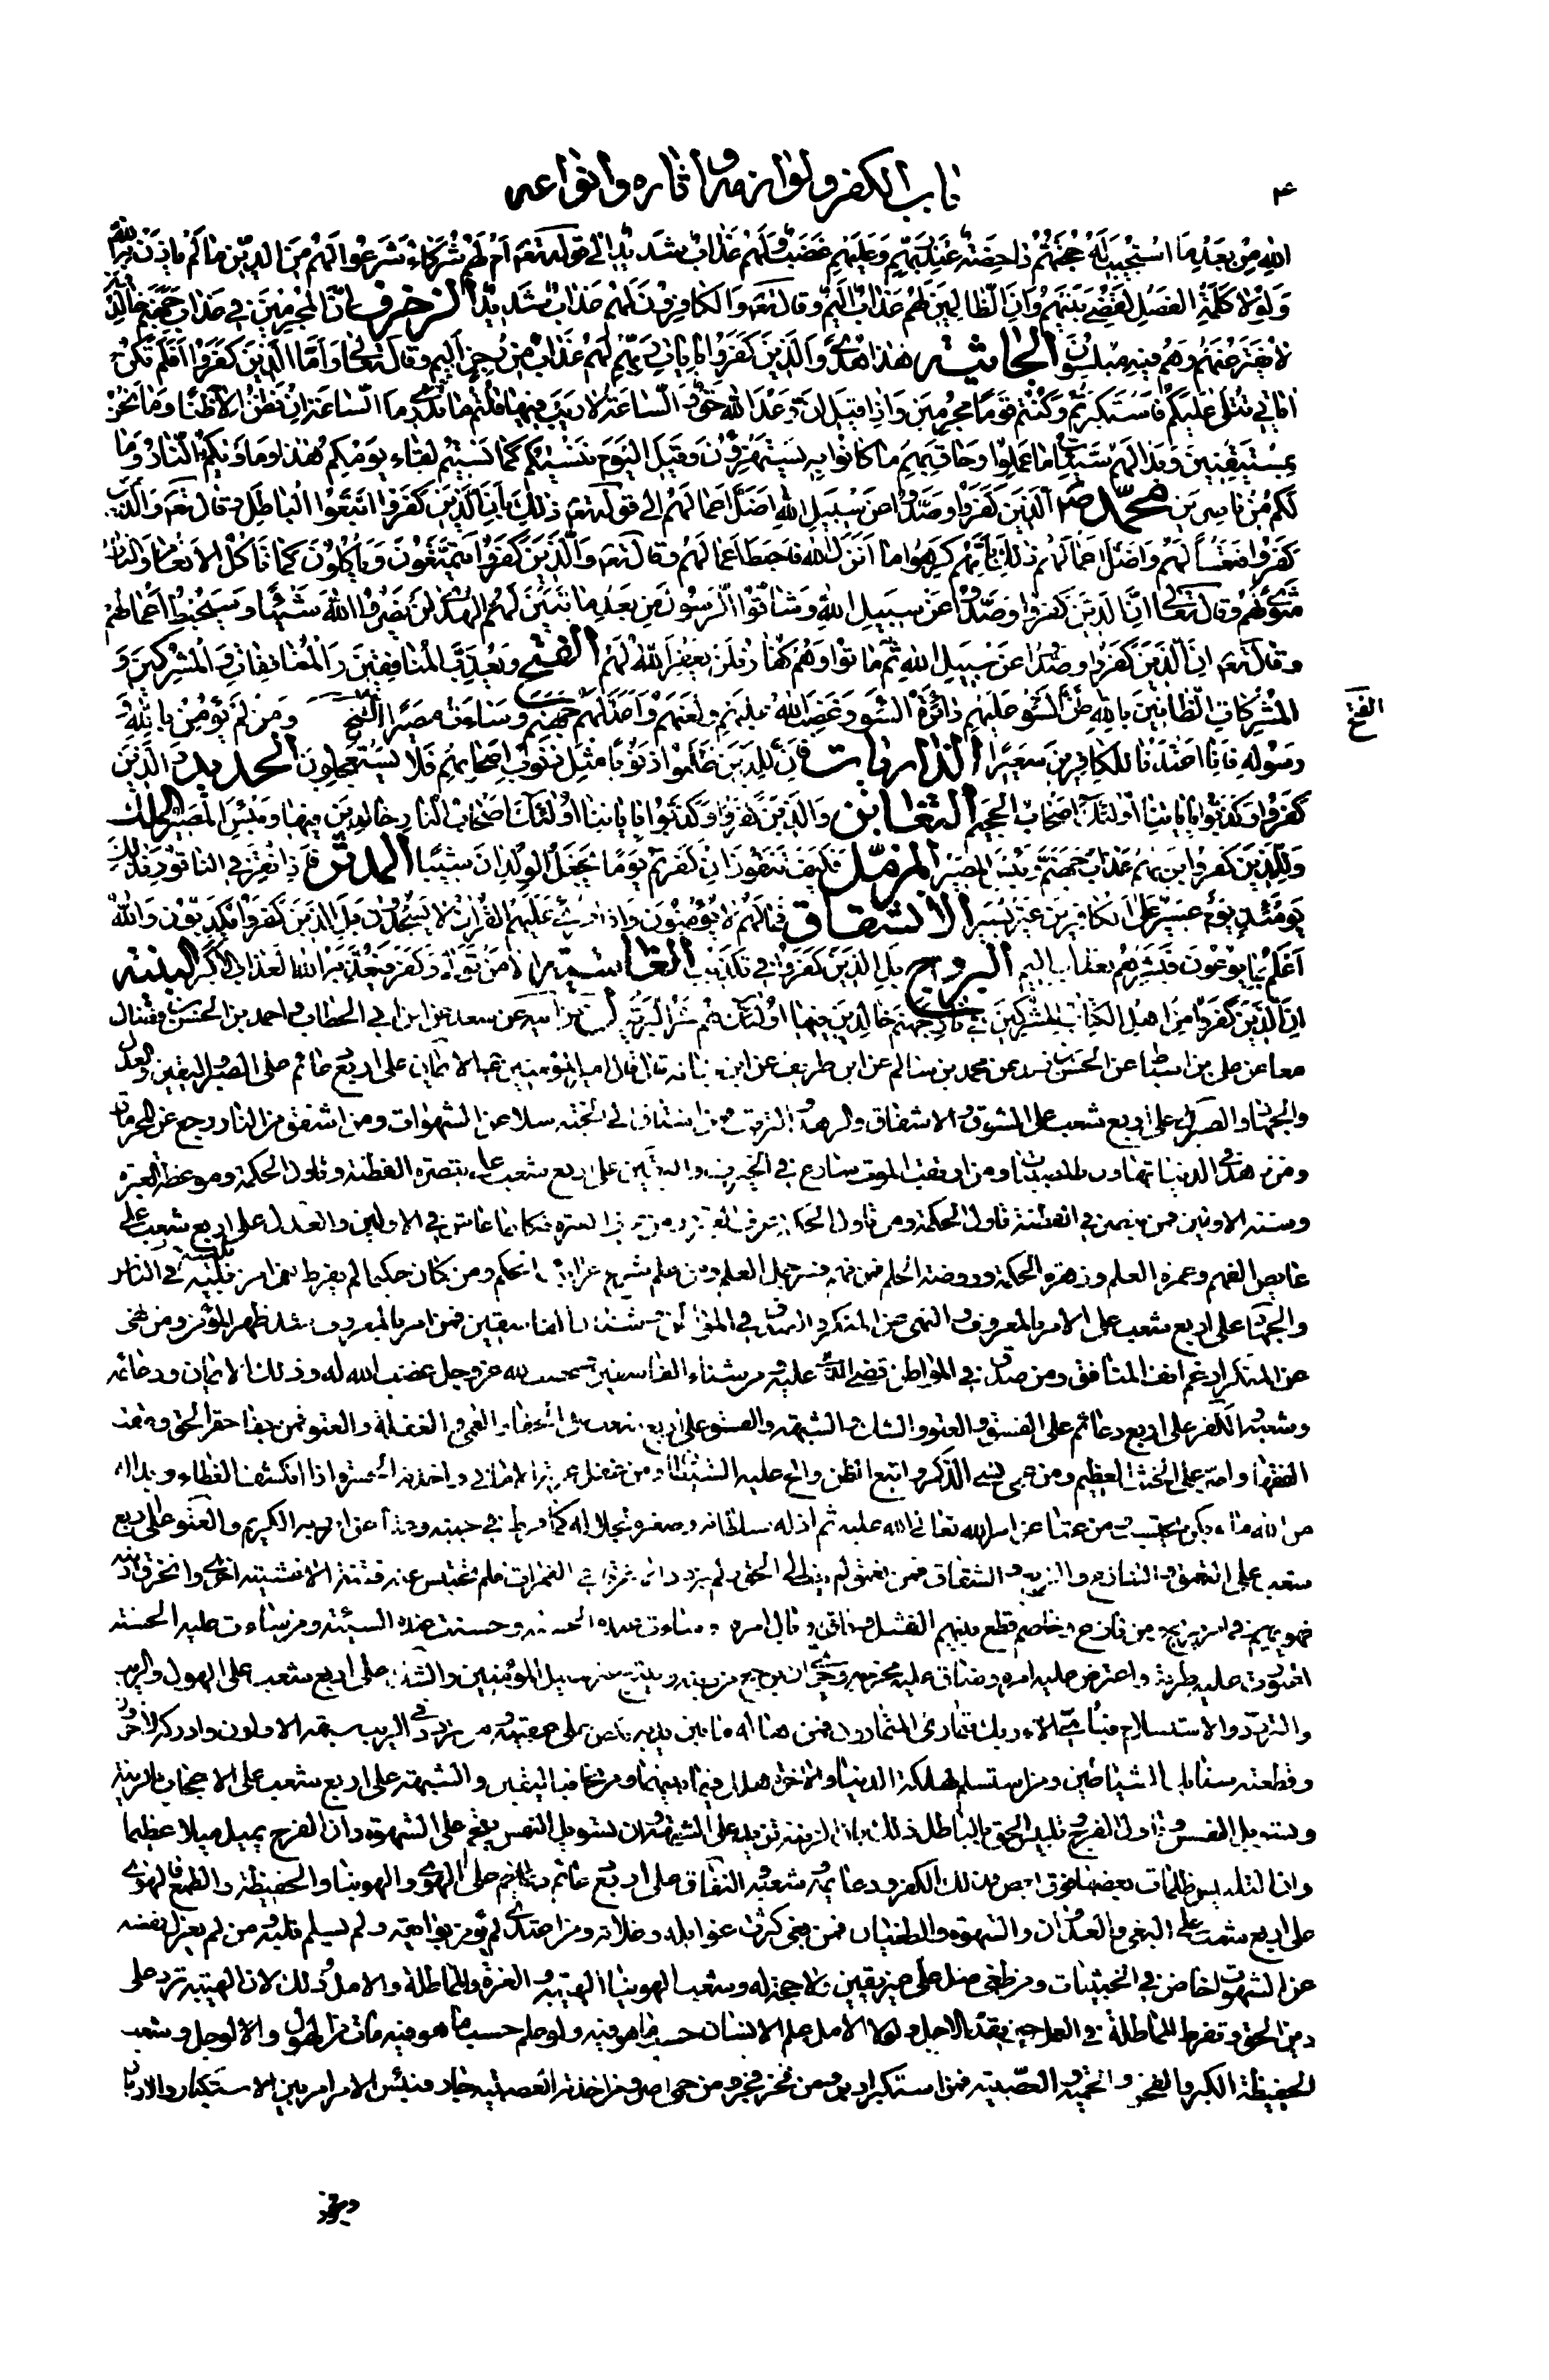 ۴
باب الكفر ولوازمه وآثاره وانواعه
اللهِ مِنْ بَعْدِ مَا اسْتُجِيبَ لَهُ حُجَّتُهُمْ دَاحِضَةٌ عِنْدَ رَبِّهِمْ وَعَلَيْهِمْ غَضَبٌ وَلَهُمْ عَذَابٌ شَدِيدٌ الى قوله تعه أَمْ لَهُمْ شُرَكَاءُ شَرَعُوا لَهُمْ مِنَ الدِّينِ مَا لَمْ يَأْذَنْ بِهِ اللهُ
وَلَوْلَا كَلِمَةُ الْفَصْلِ لَقُضِيَ بَيْنَهُمْ وَإِنَّ الظَّالِمِينَ لَهُمْ عَذَابٌ أَلِيمٌ وقال تعه وَالْكَافِرُونَ لَهُمْ عَذَابٌ شَدِيدٌ الزخرف إِنَّ الْمُجْرِمِينَ فِي عَذَابِ جَهَنَّمَ خَالِدُونَ
لَا يُفَتَّرُ عَنْهُمْ وَهُمْ فِيهِ مُبْلِسُونَ الجاثيه هَذَا هُدًى وَالَّذِينَ كَفَرُوا بِآيَاتِ رَبِّهِمْ لَهُمْ عَذَابٌ مِنْ رِجْزٍ أَلِيمٌ وقال تعالى وَأَمَّا الَّذِينَ كَفَرُوا أَفَلَمْ تَكُنْ
آيَاتِي تُتْلَى عَلَيْكُمْ فَاسْتَكْبَرْتُمْ وَكُنْتُمْ قَوْمًا مُجْرِمِينَ وَإِذَا قِيلَ إِنَّ وَعْدَ اللهِ حَقٌّ وَالسَّاعَةُ لَا رَيْبَ فِيهَا قُلْتُمْ مَا نَدْرِي مَا السَّاعَةُ إِنْ نَظُنُّ إِلَّا ظَنًّا وَمَا نَحْنُ
بِمُسْتَيْقِنِينَ وَبَدَا لَهُمْ سَيِّئَاتُ مَا عَمِلُوا وَحَاقَ بِهِمْ مَا كَانُوا بِهِ يَسْتَهْزِؤُنَ وَقِيلَ الْيَوْمَ نَنْسَيكُمْ كَمَا نَسِيتُمْ لِقَاءَ يَوْمِكُمْ هَذَا وَمَأْوَيكُمُ النَّارُ وَمَا
لَكُمْ مِنْ نَاصِرِينَ محمد ص الَّذِينَ كَفَرُوا وَصَدُّوا عَنْ سَبِيلِ اللهِ أَضَلَّ أَعْمَالَهُمْ الى قوله تعه ذَلِكَ بِأَنَّ الَّذِينَ كَفَرُوا اتَّبَعُوا الْبَاطِلَ وقال تعه وَالَّذِينَ
كَفَرُوا فَتَعْسًا لَهُمْ وَأَضَلَّ أَعْمَالَهُمْ ذَلِكَ بِأَنَّهُمْ كَرِهُوا مَا أَنْزَلَ اللهُ فَأَحْبَطَ أَعْمَالَهُمْ وقال تعه وَالَّذِينَ كَفَرُوا يَتَمَتَّعُونَ وَيَأْكُلُونَ كَمَا تَأْكُلُ الْأَنْعَامُ وَالنَّارُ
مَثْوًى لَهُمْ وقال تعالى إِنَّ الَّذِينَ كَفَرُوا وَصَدُّوا عَنْ سَبِيلِ اللهِ وَشَاقُّوا الرَّسُولَ مِنْ بَعْدِ مَا تَبَيَّنَ لَهُمُ الْهُدَى لَنْ يَضُرُّوا اللهَ شَيْئًا وَسَيُحْبِطُ أَعْمَالَهُمْ
وقال تعه إِنَّ الَّذِينَ كَفَرُوا وَصَدُّوا عَنْ سَبِيلِ اللهِ ثُمَّ مَاتُوا وَهُمْ كُفَّارٌ فَلَنْ يَغْفِرَ اللهُ لَهُمْ الفتح وَيُعَذِّبَ الْمُنَافِقِينَ وَالْمُنَافِقَاتِ وَالْمُشْرِكِينَ وَ
الْمُشْرِكَاتِ الظَّانِّينَ بِاللهِ ظَنَّ السَّوْءِ عَلَيْهِمْ دَائِرَةُ السَّوْءِ وَغَضِبَ اللهُ عَلَيْهِمْ وَلَعَنَهُمْ وَأَعَدَّ لَهُمْ جَهَنَّمَ وَسَاءَتْ مَصِيرًا الفتح وَمَنْ لَمْ يُؤْمِنْ بِاللهِ وَ
الفتح
رَسُولِهِ فَإِنَّا أَعْتَدْنَا لِلْكَافِرِينَ سَعِيرًا الذاريات فَإِنَّ لِلَّذِينَ ظَلَمُوا ذَنُوبًا مِثْلَ ذَنُوبِ أَصْحَابِهِمْ فَلَا يَسْتَعْجِلُونِ الحديد وَالَّذِينَ
كَفَرُوا وَكَذَّبُوا بِآيَاتِنَا أُولَئِكَ أَصْحَابُ الْجَحِيمِ التغابن وَالَّذِينَ كَفَرُوا وَكَذَّبُوا بِآيَاتِنَا أُولَئِكَ أَصْحَابُ النَّارِ خَالِدِينَ فِيهَا وَبِئْسَ الْمَصِيرُ الملك
وَلِلَّذِينَ كَفَرُوا بِرَبِّهِمْ عَذَابُ جَهَنَّمَ وَبِئْسَ الْمَصِيرُ المزمل فَكَيْفَ تَتَّقُونَ إِنْ كَفَرْتُمْ يَوْمًا يَجْعَلُ الْوِلْدَانَ شِيبًا المدثر فَإِذَا نُقِرَ فِي النَّاقُورِ فَذَلِكَ
يَوْمَئِذٍ يَوْمٌ عَسِيرٌ عَلَى الْكَافِرِينَ غَيْرُ يَسِيرٍ الانشقاق فَمَا لَهُمْ لَا يُؤْمِنُونَ وَإِذَا قُرِئَ عَلَيْهِمُ الْقُرْآنُ لَا يَسْجُدُونَ بَلِ الَّذِينَ كَفَرُوا يُكَذِّبُونَ وَاللهُ
أَعْلَمُ بِمَا يُوعُونَ فَبَشِّرْهُمْ بِعَذَابٍ أَلِيمٍ البروج بَلِ الَّذِينَ كَفَرُوا فِي تَكْذِيبٍ الغاشيه إِلَّا مَنْ تَوَلَّى وَكَفَرَ فَيُعَذِّبُهُ اللهُ الْعَذَابَ الْأَكْبَرَ البينه
إِنَّ الَّذِينَ كَفَرُوا مِنْ أَهْلِ الْكِتَابِ وَالْمُشْرِكِينَ فِي نَارِ جَهَنَّمَ خَالِدِينَ فِيهَا أُولَئِكَ هُمْ شَرُّ الْبَرِيَّةِ عن سعد عن ابن ابي الخطاب واحمد بن الحسن بن فضال
معا عن على بن اسباط عن الحسن بن عن محمد بن سالم عن ابن طريف عن ابن نباته قال قال امير المؤمنين الايمان على اربع دعائم على الصبر واليقين والعدل
والجهاد والصبر على اربع شعب على الشوق والاشفاق والزهد والترقب فمن اشتاق الى الجنة سلا عن الشهوات ومن اشفق من النار رجع عن المحرمات
ومن زهد في الدنيا تهاون بالمصيبات ومن ارتقب الموت سارع في الخيرات واليقين على اربع شعب على تبصرة الفطنة وتاول الحكمة وموعظة العبرة
وسنة الاولين فمن تبصر في الفطنة تاول الحكمة ومن تاول الحكمة عرف العبرة ومن عرف العبرة فكانما عاش في الاولين والعدل على اربع شعب على
غايص الفهم وغمرة العلم وزهرة الحكمة وروضة الحلم فمن فهم فسر جمل العلم ومن علم شرع غرايب الحكم ومن كان حكيما لم يفرط في امر يليه في الناس
والجهاد على اربع شعب على الامر بالمعروف والنهى عن المنكر والصدق في المواطن وشنآن الفاسقين فمن امر بالمعروف شد ظهر المؤمن ومن نهى
عن المنكر ارغم انف المنافق ومن صدق في المواطن قضى الذي عليه ومن شناء الفاسقين غضب لله عز وجل غضب الله له وذلك الايمان ودعائمه
وشعبه والكفر على اربع دعائم على الفسق والعتو والشك والشبهة والفسق على اربع شعب على الجفاء والعمى والغفلة والعتو فمن جفا حقر الحق ومقت
الفقهاء واصر على الحنث العظيم ومن عمى نسى الذكر واتبع الظن والح عليه الشيطان ومن غفل غرته الامانى واخذته الحسرة اذا انكشف الغطاء وبدا له
من الله ما لم يكن يحتسب ومن عتا عن امر الله تعالى الله عليه ثم اذله بسلطانه وصغره بجلاله كما فرط في جنبه وعتا عن امر ربه الكريم والعتو على اربع
شعب على التعمق والتنازع والزيغ والشقاق فمن تعمق لم ينب الى الحق ولم يزدد الا غرقا في الغمرات فلم تحتبس عنه فتنة الا غشيته اخرى وانخرق دينه
فهو يهيم في امر مريج ومن نازع وخاصم قطع بينهم الفشل وذاق وبال امره وساءت عنده الحسنة وحسنت عنده السيئة ومن ساءت عليه الحسنة
اعورت عليه طرقه واعترض عليه امره وضاق عليه مخرجه وحرى ان يرجع من دينه ويتبع غير سبيل المؤمنين والشك على اربع شعب على الهول والريب
والتردد والاستسلام فباى آلاء ربك يتمارى المتمارون فمن هاله ما بين يديه نكص على عقبيه ومن تردد في الريب سبقه الاولون وادركه الآخرون
وقطعته سنابك الشياطين ومن استسلم لهلكة الدنيا والآخرة هلك فيما بينهما ومن نجا فباليقين والشبهة على اربع شعب على الاعجاب بالزينة
وتسويل النفس وتاول الفرج وتلبس الحق بالباطل ذلك بان الزينة تزيد على الشبهة وان تسويل النفس يقحم على الشهوة وان الفرج يميل ميلا عظيما
وان التلبيس ظلمات بعضها فوق بعض فذلك الكفر ودعائمه وشعبه والنفاق على اربع دعائم على الهوى والهوينا والحفيظة والطمع فالهوى
على اربع شعب على البغى والعدوان والشهوة والطغيان فمن بغى كثرت غوايله وعلاته ومن اعتدى لم تؤمن بوايقه ولم يسلم قلبه ومن لم يعزل نفسه
عن الشهوات خاض في الخبيثات ومن طغى ضل على غير يقين ولا حجة له وشعب الهوينا الهيبة والغرة والمماطلة والامل وذلك لان الهيبة ترد على
دين الحق وتفرط المماطلة في العمل حتى يقدم الاجل ولولا الامل علم الانسان حسب ما هو فيه ولو علم حسب ما هو فيه مات من الهول والوجل وشعب
الحفيظة الكبر والفخر والحمية والعصبية فمن استكبر ادبر ومن فخر فجر ومن حمى اصر ومن اخذته العصبية جار فبئس الامر امر بين الاستكبار والادبار